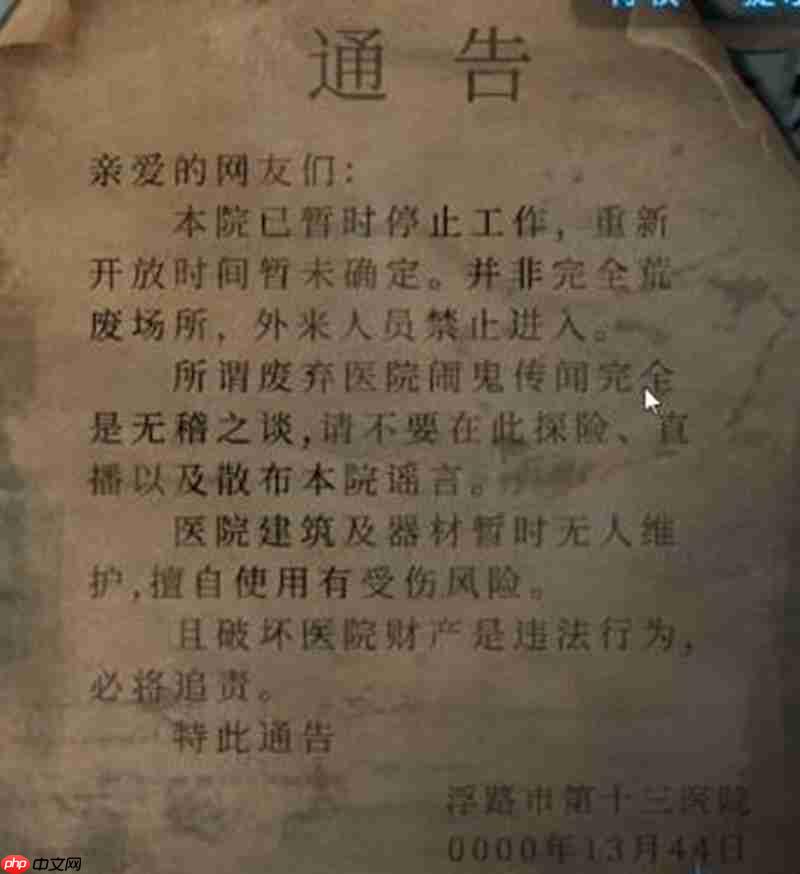 通告
亲爱的网友们：
本院已暂时停止工作，重新
开放时间暂未确定。并非完全荒
废场所，外来人员禁止进入。
所谓废弃医院闹鬼传闻完全
是无稽之谈，请不要在此探险、直
播以及散布本院谣言。
医院建筑及器材暂时无人维
护，擅自使用有受伤风险。
且破坏医院财产是违法行为，
必将追责。
特此通告
浮路市第十三医院
0000年13月44日
php 中文网